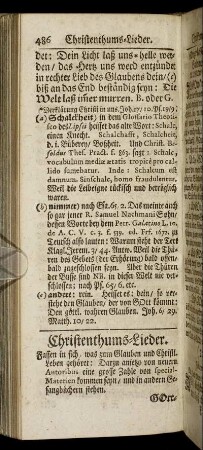 486 Christenthums-Lieder.
det: Dein Licht laß uns helle wer-
den/ das Hertz uns werd entzündt
in rechter Lieb des Glaubens dein/(c)
biß an das End beständig seyn: Die
Welt laß im̃er murren. B. oder G.
Verklärung Christi in uns. Joh. 17/10. Ps. 19/9.
(a) Schalckheit) in dem Glossario Theotisco
des Lipsii heisset das alte Wort: Schalc,
einen Knecht. Schalchafft, Schalcheit,
d. i. Büberey/ Boßheit. Und Christ.
Thes. Pract. f. 863. sagt: Schalc,
vocabulum mediæ ætatis pro
sumebatur. Inde: Schalcum
damnum. Sinschalc, homo fraudulentus.
Weil die Leibeigne tückisch und betrieglich
waren.
(b) nimmer) nach Es. 65/2. Das meinte auch
so gar jener R. Samuel Nachmani Sohn/
dessen Worte bey dem Petr. Galatino L. 10.
de A. C. V. c. 3. f. 539. ed. Frf. 1672.
Teutsch also lauten: Warum steht der Text
Klagl. Jerem. 3/44. Antw. Weil die Thü-
ren des Gebets (der Erhörung) bald offen/
bald zugeschlossen seyn. Aber die Thüren
der Busse sind NB. in dieser Welt nie ver-
schlossen; nach Ps. 65/6. etc.
(c) andere: rein. Heisset es: dein/ so ver-
stehe den Glauben/ der von GOtt kömmt:
Den göttl. wahren Glauben. Joh. 6/29.
Matth. 10/22.
Christenthums-Lieder.
Fassen in sich, was zum Glauben und Christl.
Leben gehöret: Darzu anietzo von neuern
Autoribus eine große Zahle von special-
Materien kommen seyn/ und in andern Ge-
sangbüchern stehen.
GOtt/